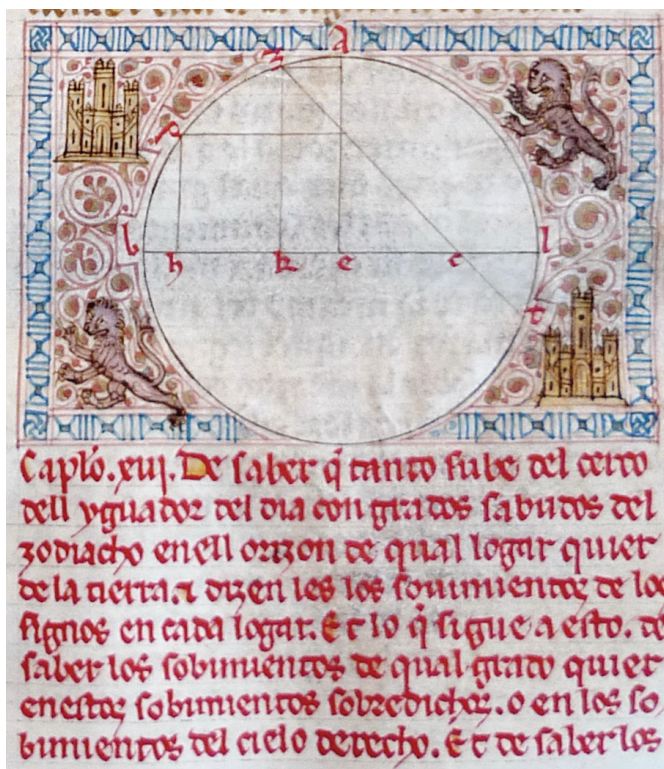 A
z
p
b
h
k
e
c
l
t
Capło. xvj. De saber q̄ tanto sube del cerco
dell yguador del dia con grados sabudos del
zodiacho en ell orizon de qual logar quier
de la tierra. ⁊ dizen les los sobimientos de los
signos en cada logar. Et lo q̄ sigue a esto. de
saber los sobimientos de qual grado quier
en estos sobimientos sobredichos. o en los so
bimientos del cielo derecho. Et de saber los